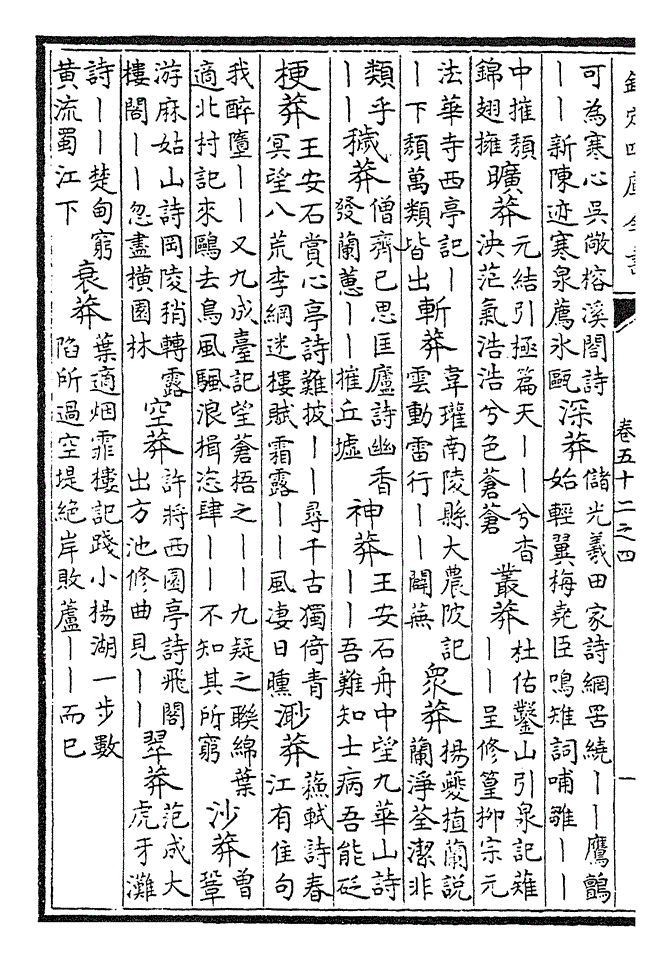 欽定四庫全書
卷五十二之四
一
可為寒心吳儆榕溪閣詩
——新陳迹寒泉薦氷甌
深莽
儲光羲田家詩網罟繞——鷹鸇
始輕翼梅堯臣鳴雉詞哺雛——
中摧頹
錦翅擁
曠莽
元結引極篇天——兮杳
泱茫氣浩浩兮色蒼蒼
叢莽
杜佑鑿山引泉記薙
——呈修篁抑宗元
法華寺西亭記—
—下頹萬類皆出
斬莽
韋瓘南陵縣大農陂記
雲動雷行——闢蕪
衆莽
楊夔植蘭說
蘭淨荃潔非
類乎
——
穢莽
僧齊已思匡廬詩幽香
發蘭蕙——摧丘墟
神莽
王安石舟中望九華山詩
——吾難知士病吾能砭
梗莽
王安石賞心亭詩難披——尋千古獨倚青
冥望八荒李綱迷樓賦霜露——風凄日曛
渺莽
蘇軾詩春
江有佳句
我醉墮——又九成臺記望蒼梧之——九疑之聯綿葉
適北村記來鷗去鳥風颿浪楫恣肆——不知其所窮
沙莽
曾
鞏
游麻姑山詩岡陵稍轉露
樓閣——忽盡橫園林
空莽
許將西園亭詩飛閣
出方池修曲見——
翠莽
范成大
虎牙灘
詩——楚甸窮
黃流蜀江下
衰莽
葉適烟霏樓記踐小揚湖一步數
陷所過空堤絶岸敗蘆——而已